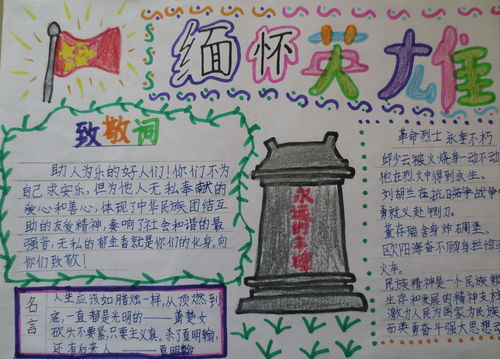 缅怀英雄
致敬词
助人为乐的好人们！你们不为
自己求安乐，但为他人无私奉献的
爱心和善心，体现了中华民族团结互
助的友爱精神，奏响了社会和谐的最
强音，无私的郁金香就是你们的化身，向
你们致敬！
永远的丰碑
名言
人生应该如腊烛一样，从顶燃到
底，一直都是光明的——萧楚女
砍头不要紧，只要主义真。杀了夏明翰，
还有后来人————夏明翰
革命烈士 永垂不朽
邱少云被火烧身一动不动
他在烈火中得到永生。
刘胡兰在抗日战争战争
勇就义赴铡刀。
董存瑞舍身炸碉堡。
欧阳海奋不顾身拦惊
火车。
民族精神是一个民族赖
生存和发展的精神支
激励人民为国家为民族
而英勇奋斗强大思想